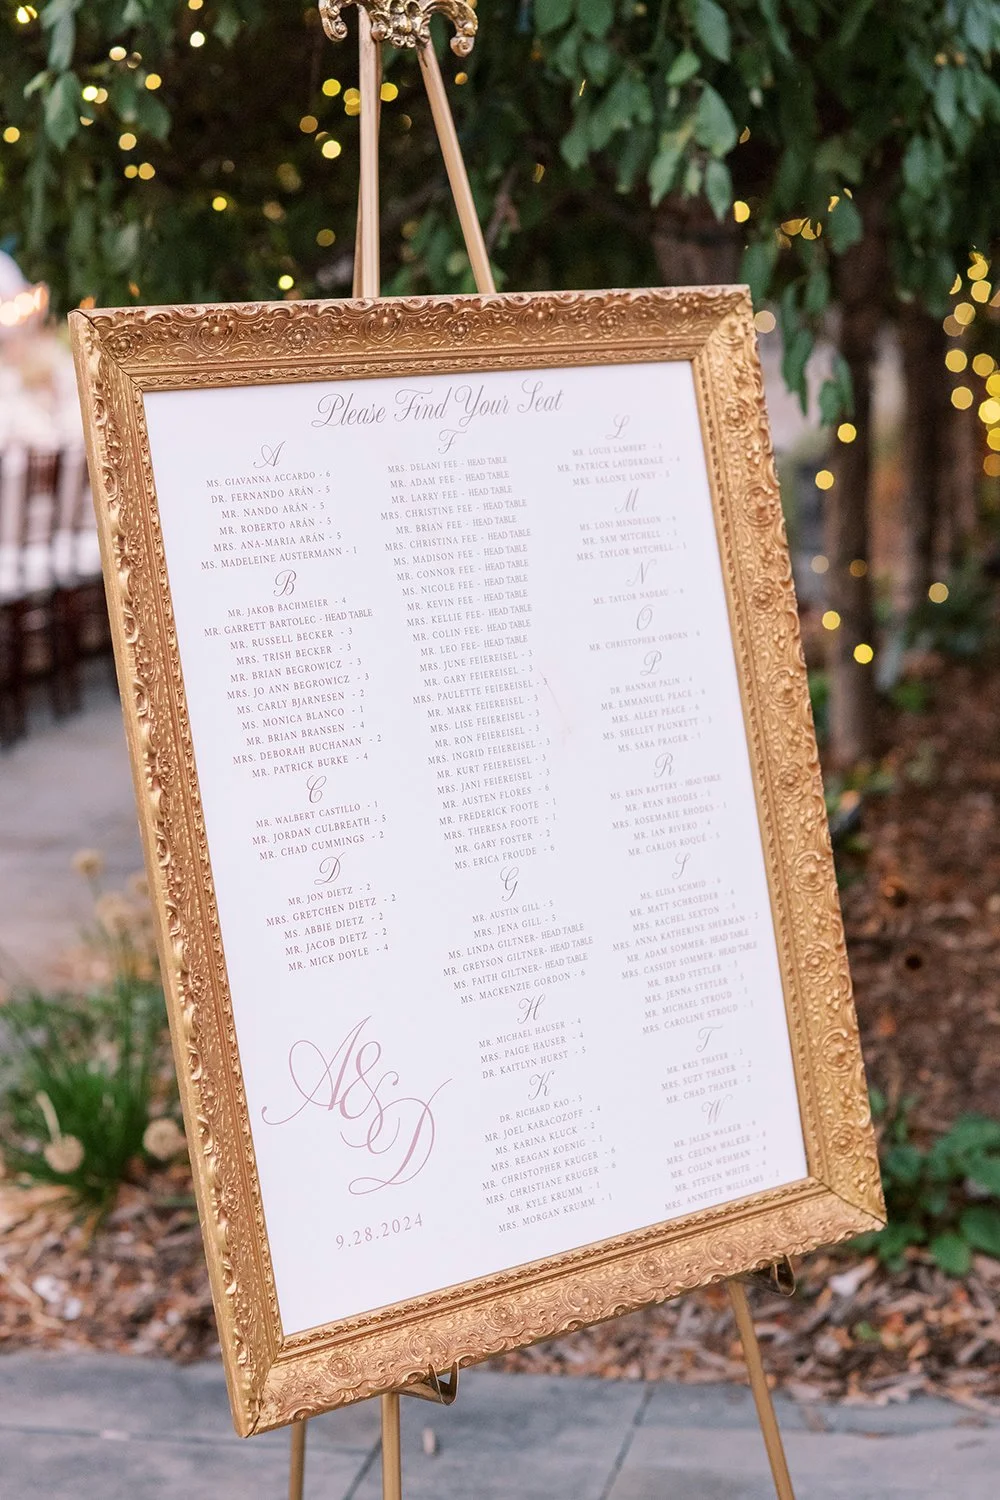 Please Find Your Seat
A
MS. GIAVANNA ACCARDO - 6
DR. FERNANDO ARÁN - 5
MR. NANDO ARÁN - 5
MR. ROBERTO ARÁN - 5
MRS. ANA-MARIA ARÁN - 5
MS. MADELEINE AUSTERMANN - 1
B
MR. JAKOB BACHMEIER - 4
MR. GARRETT BARTOLEC - HEAD TABLE
MR. RUSSELL BECKER - 3
MRS. TRISH BECKER - 3
MR. BRIAN BEGROWICZ - 3
MRS. JO ANN BEGROWICZ - 3
MS. CARLY BJARNESEN - 2
MS. MONICA BLANCO - 1
MR. BRIAN BRANSEN - 4
MRS. DEBORAH BUCHANAN - 2
MR. PATRICK BURKE - 4
C
MR. WALBERT CASTILLO - 1
MR. JORDAN CULBREATH - 5
MR. CHAD CUMMINGS - 2
D
MR. JON DIETZ - 2
MRS. GRETCHEN DIETZ - 2
MS. ABBIE DIETZ - 2
MR. JACOB DIETZ - 2
MR. MICK DOYLE - 4
A&D
9.28.2024
F
MRS. DELANI FEE - HEAD TABLE
MR. ADAM FEE - HEAD TABLE
MR. LARRY FEE - HEAD TABLE
MRS. CHRISTINE FEE - HEAD TABLE
MR. BRIAN FEE - HEAD TABLE
MRS. CHRISTINA FEE - HEAD TABLE
MS. MADISON FEE - HEAD TABLE
MR. CONNOR FEE - HEAD TABLE
MS. NICOLE FEE - HEAD TABLE
MR. KEVIN FEE - HEAD TABLE
MRS. KELLIE FEE - HEAD TABLE
MR. COLIN FEE - HEAD TABLE
MR. LEO FEE - HEAD TABLE
MRS. JUNE FEIEREISEL - 3
MR. GARY FEIEREISEL - 3
MRS. PAULETTE FEIEREISEL - 3
MR. MARK FEIEREISEL - 3
MRS. LISE FEIEREISEL - 3
MR. RON FEIEREISEL - 3
MRS. INGRID FEIEREISEL - 3
MR. KURT FEIEREISEL - 3
MRS. JANI FEIEREISEL - 3
MR. AUSTEN FLORES - 6
MR. FREDERICK FOOTE - 1
MRS. THERESA FOOTE - 1
MR. GARY FOSTER - 2
MS. ERICA FROUDE - 6
G
MR. AUSTIN GILL - 5
MRS. JENA GILL - 5
MS. LINDA GILTNER- HEAD TABLE
MR. GREYSON GILTNER- HEAD TABLE
MS. FAITH GILTNER- HEAD TABLE
MS. MACKENZIE GORDON - 6
H
MR. MICHAEL HAUSER - 4
MRS. PAIGE HAUSER - 4
DR. KAITLYN HURST - 5
K
DR. RICHARD KAO - 5
MR. JOEL KARACOZOFF - 4
MS. KARINA KLUCK - 2
MRS. REAGAN KOENIG -
MR. CHRISTOPHER KRUGER - 6
MRS. CHRISTIANE KRUGER - 6
MR. KYLE KRUMM - 1
MRS. MORGAN KRUMM - 1
L
MR. LOUIS LAMBERT -
MR. PATRICK LAUDERDALE - 4
MRS. SALONE LONEY -
M
MS. LONI MENDELSON -
MR. SAM MITCHELL -
MRS. TAYLOR MITCHELL -
N
MS. TAYLOR NADEAU -
O
MR. CHRISTOPHER OSBORN - 4
P
DR. HANNAH PALIN -
MR. EMMANUEL PEACE -
MRS. ALLEY PEACE -
MS. SHELLEY PLUNKETT -
MS. SARA PRAGER -
R
MS. ERIN RAFTERY - HEAD TABLE
MR. RYAN RHODES -
MRS. ROSEMARIE RHODES -
MR. IAN RIVERO -
MR. CARLOS ROQUE -
S
MS. ELISA SCHMID -
MR. MATT SCHROEDER -
MRS. RACHEL SEXTON -
MRS. ANNA KATHERINE SHERMAN - 2
MR. ADAM SOMMER- HEAD TABLE
MRS. CASSIDY SOMMER- HEAD TABLE
MR. BRAD STETLER -
MRS. JENNA STETLER -
MR. MICHAEL STROUD -
MRS. CAROLINE STROUD -
T
MR. KRIS THAYER - 2
MRS. SUZY THAYER - 2
MR. CHAD THAYER - 2
W
MR. JALEN WALKER -
MRS. CELINA WALKER -
MR. COLIN WEHMAN -
MR. STEVEN WHITE -
MRS. ANNETTE WILLIAMS -